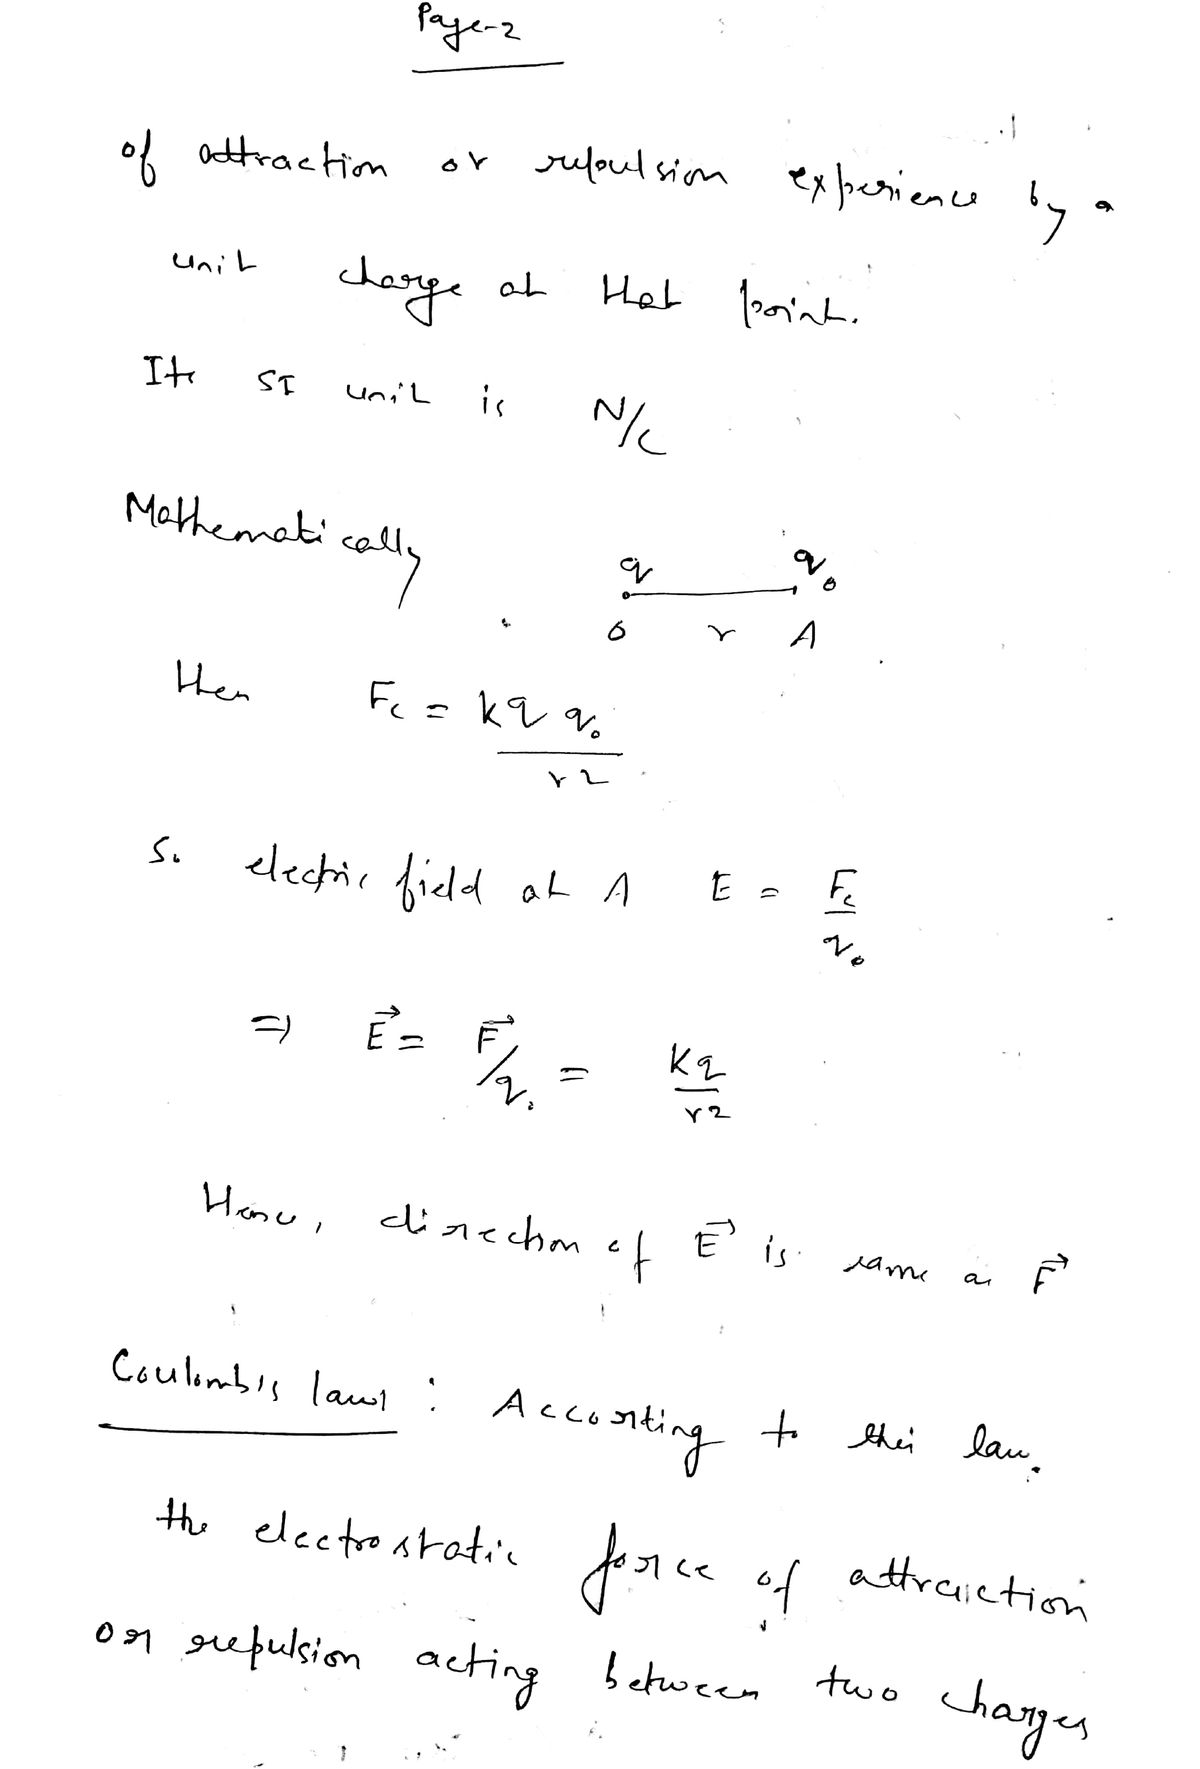 Page-2
of attraction or repulsion experience by a
unit charge at that point.
Its SI unit is N/C
Mathematically
q q₀
O r A
then Fc = kq q₀
r2
So electric field at A E = Fc
q₀
⇒ E⃗ = F⃗/q₀ = kq
r2
Hence, direction of E⃗ is same as F⃗
Coulomb's laws : Accorting to this law.
the electrostatic force of attraction
or repulsion acting between two charges